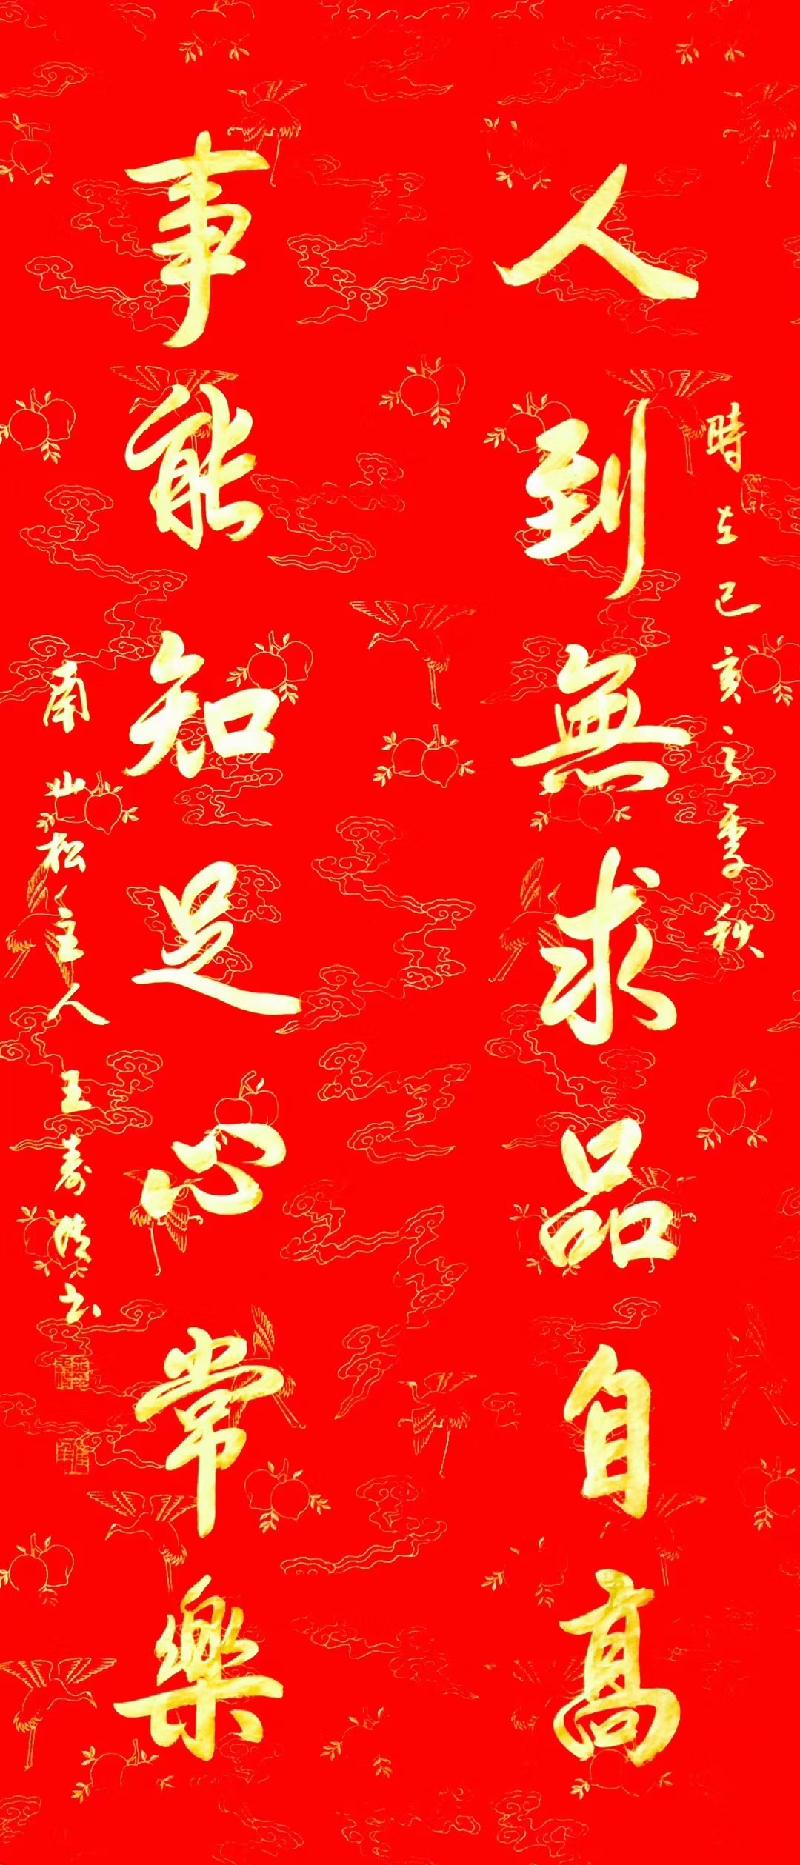 人到無求品自高
時在己亥之季秋
事能知足心常樂
南山松主人王壽
書